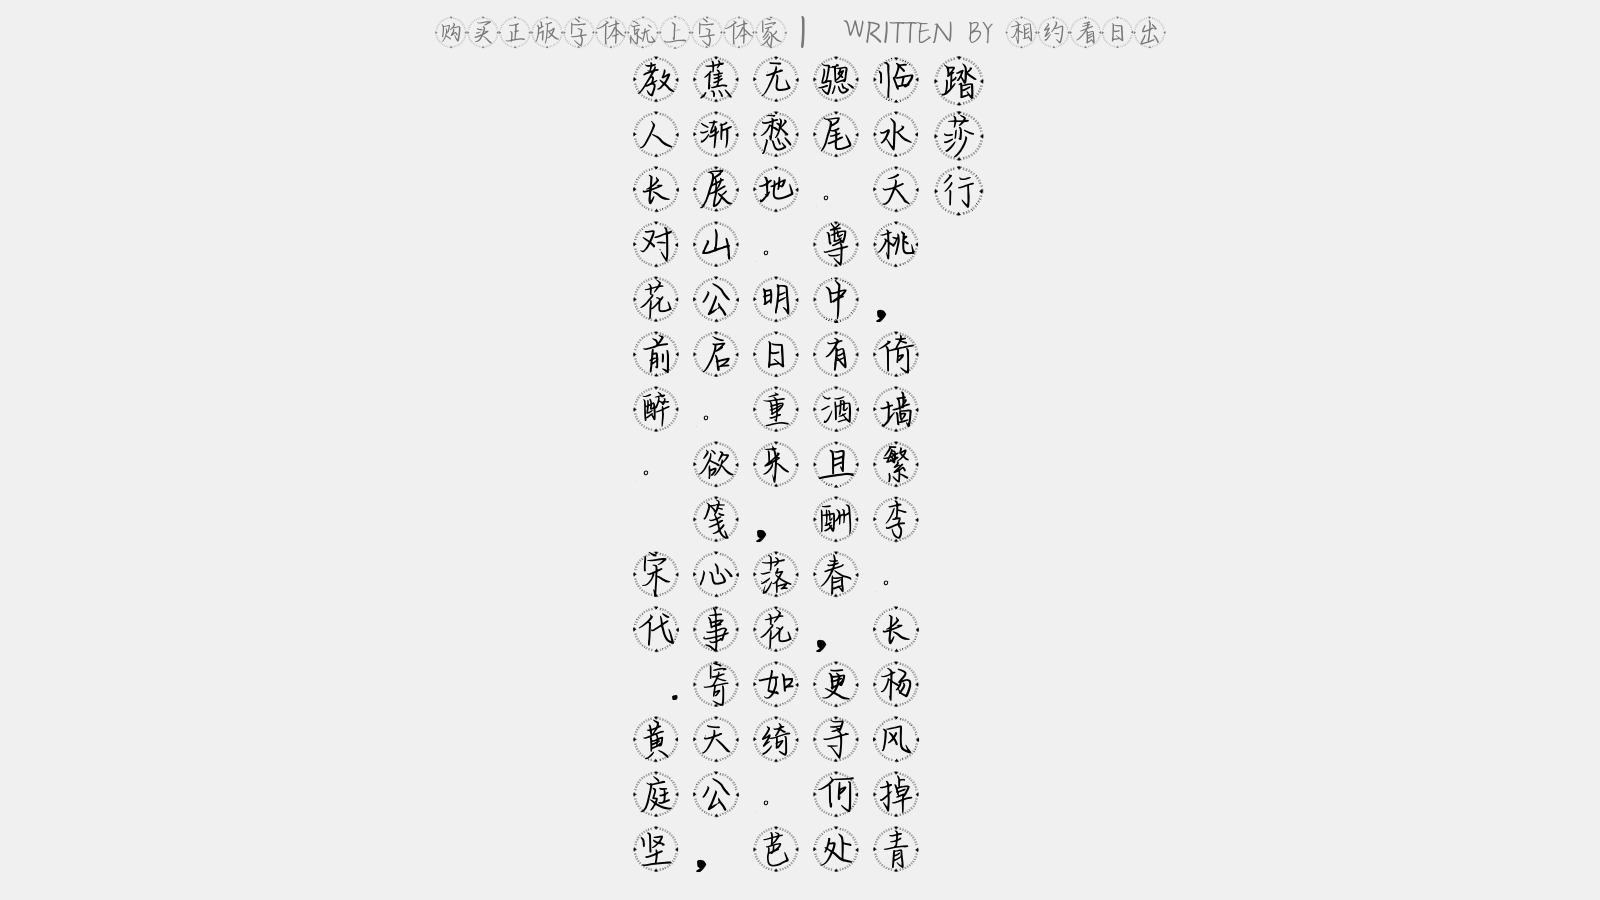 购买正版字体就上字体家 | WRITTEN BY 相约看日出
踏莎行
临水夭桃，倚墙繁李。长杨风掉青
骢尾。尊中有酒且酬春，更寻何处
无愁地。明日重来，落花如绮。芭
蕉渐展山公启。欲笺心事寄天公，
教人长对花前醉。 宋代.黄庭坚